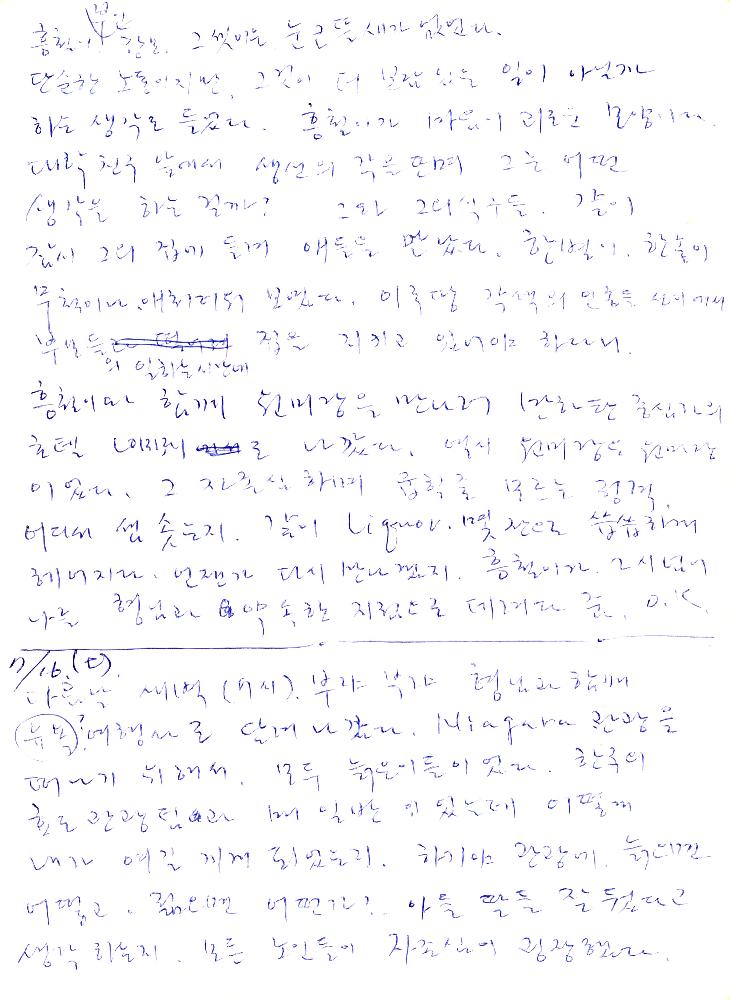 부인
흥철이, 한모. 그 셋이는 눈코 뜰 새가 없었다.
단순한 노동이지만, 그것이 더 보람있는 일이 아닐까
하는 생각도 들었다. 흥철이가 마음이 괴로운 모양이다.
대학 친구 앞에서 생선의 각을 뜨며 그는 어떤
생각을 하는 걸까? 그와 그의 식구들. 같이
잠시 그의 집에 들려 애들을 만났다. 한별이, 한솔이
무척이나 애처러워 보였다. 이국땅 각색의 인종들 속에서
부모들 집을 지키고 있어야 하다니.
의 일하는 시간에
흥철이와 함께 원미랑을 만나러 맨하탄 중심가의
호텔 로 나갔다. 역시 원미랑은 원미랑
이었다. 그 자존심하며 굽힐 줄 모르는 정력,
어디서 샘솟는지. 같이 Liquor 몇 잔으로 씁씁하게
헤어지다. 언젠가 다시 만나겠지. 흥철이가 고시넘어
나를 형님과 약속한 지점으로 데려다 줌. O.K.
7/16.(토).
다음날 새벽 (시). 부랴부랴 형님과 함께
? 여행사로 달려 나갔다. Niagara 관광을
떠나기 위해서. 모두 늙은이들이었다. 한국의
효도관광팀과 매일반이었는데 어떻게
내가 여길 끼게 되었는지. 하기야 관광에 늙으면
어떻고, 젊으면 어떤가? 아들 딸들 잘 뒀다고
생각하는지, 모든 노인들이 자존심이 굉장했다.